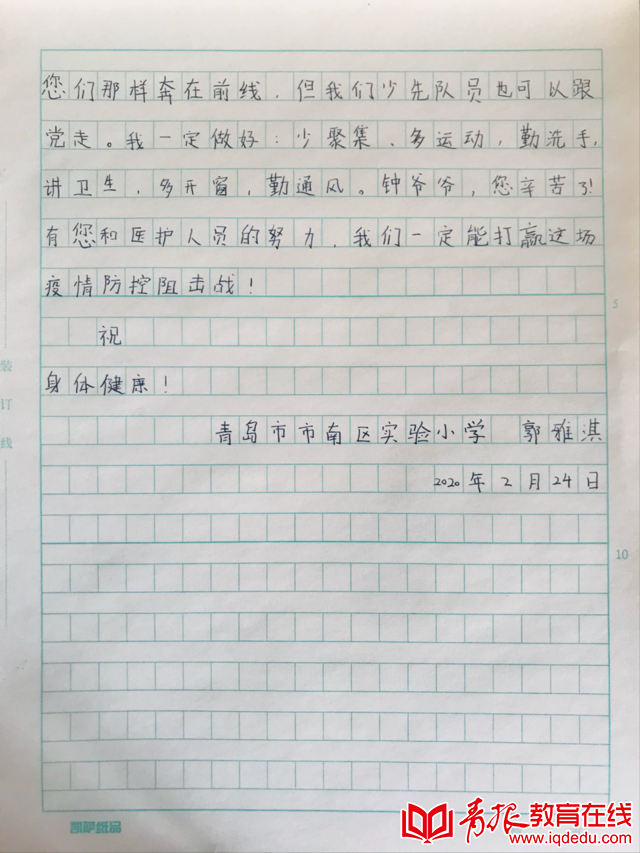 您们那样奔在前线，但我们少先队员也可以跟
党走。我一定做好：少聚集、多运动，勤洗手，
讲卫生，多开窗，勤通风。钟爷爷，您辛苦了！
有您和医护人员的努力，我们一定能打赢这场
疫情防控阻击战！
祝
身体健康！
青岛市市南区实验小学 郭雅淇
2020年2月24日
5
10
装
订
线
凯萨纸品
青报教育在线
www.iqdedu.com